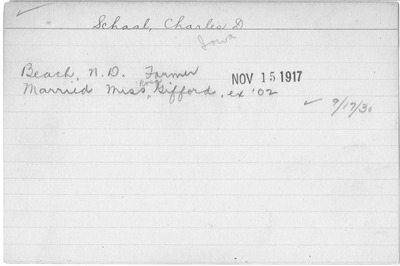 ✓
Schaal, Charles D
Iowa
Beach, N.D. Farmer NOV 15 1917
Married Miss Rose Gifford, ex '02
✓ 9/17/30